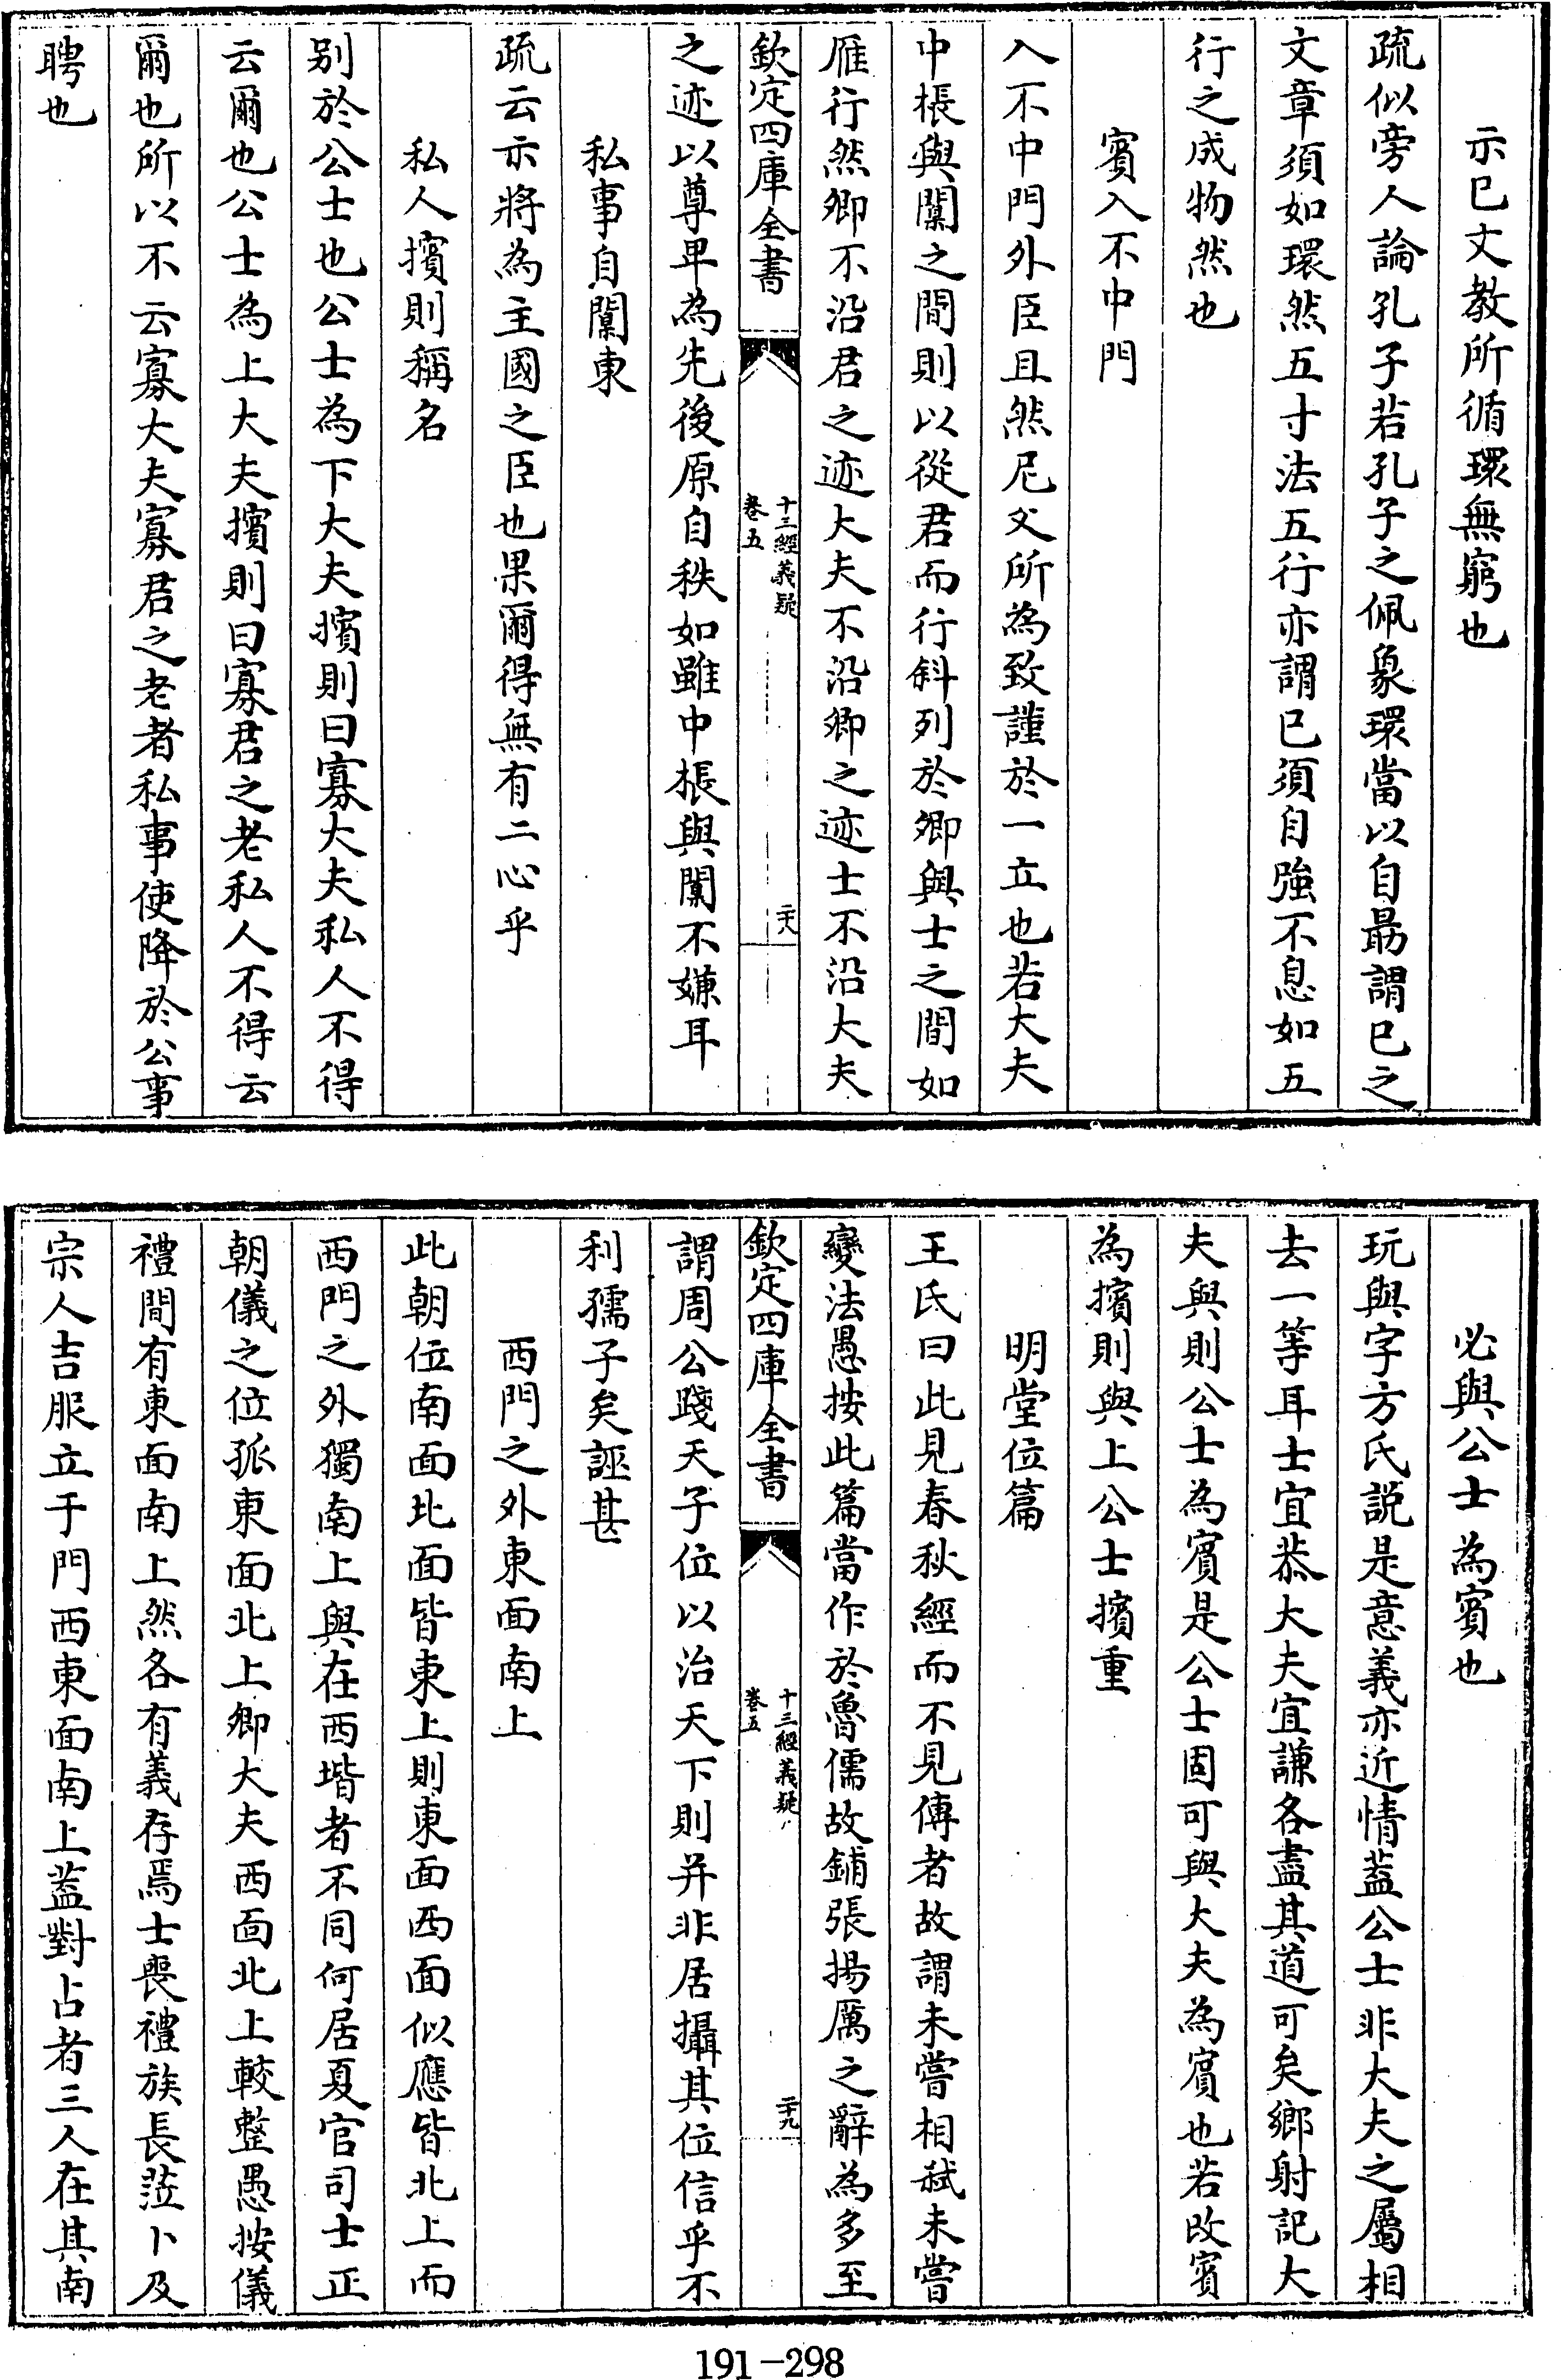 示已文教所循環無窮也
疏似旁人論孔子若孔子之佩象環當以自勗謂已之
文章須如環然五寸法五行亦謂已須自強不息如五
行之成物然也
賓入不中門
入不中門外臣且然尼父所為致謹於一立也若大夫
中棖與闑之間則以從君而行斜列於卿與士之間如
雁行然卿不沿君之迹大夫不沿卿之迹士不沿大夫
欽定四庫全書
十三經義疑
卷五
二十八
之迹以尊卑為先後原自秩如雖中棖與闑不嫌耳
私事自闑東
疏云示將為主國之臣也果爾得無有二心乎
私人擯則稱名
别於公士也公士為下大夫擯則曰寡大夫私人不得
云爾也公士為上大夫擯則曰寡君之老私人不得云
爾也所以不云寡大夫寡君之老者私事使降於公事
聘也
必與公士為賓也
玩與字方氏説是意義亦近情葢公士非大夫之屬相
去一等耳士宜恭大夫宜謙各盡其道可矣鄉射記大
夫與則公士為賓是公士固可與大夫為賓也若改賓
為擯則與上公士擯重
明堂位篇
王氏曰此見春秋經而不見傳者故謂未嘗相弑未嘗
變法愚按此篇當作於魯儒故鋪張揚厲之辭為多至
欽定四庫全書
十三經義疑
卷五
二十九
謂周公踐天子位以治天下則并非居攝其位信乎不
利孺子矣誣甚
西門之外東面南上
此朝位南面北面皆東上則東面西面似應皆北上而
西門之外獨南上與在西堦者不同何居夏官司士正
朝儀之位孤東面北上卿大夫西面北上較整愚按儀
禮間有東面南上然各有義存焉士喪禮族長涖卜及
宗人吉服立于門西東面南上葢對占者三人在其南
191-298